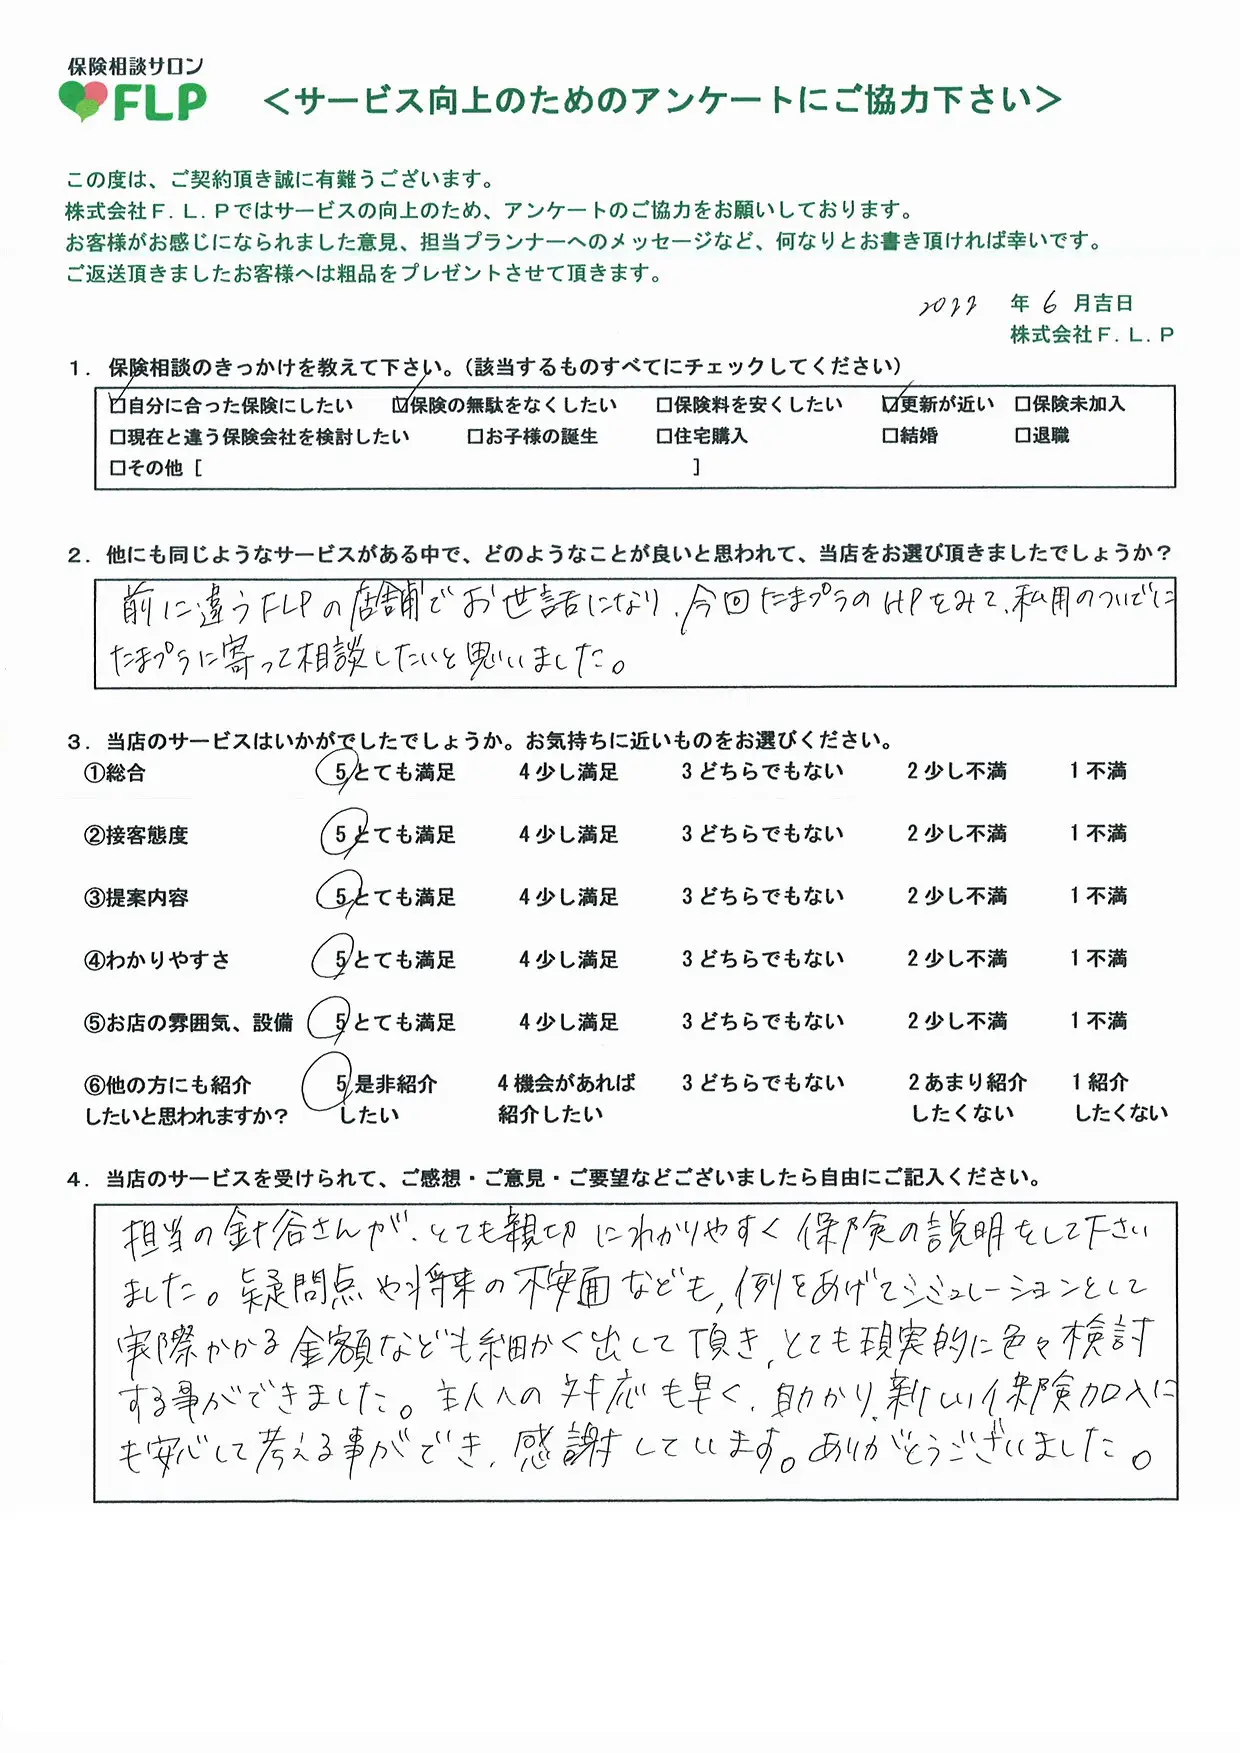 保険相談サロン
FLP
＜サービス向上のためのアンケートにご協力下さい＞
この度は、ご契約頂き誠に有難うございます。
株式会社Ｆ．Ｌ．Ｐではサービスの向上のため、アンケートのご協力をお願いしております。
お客様がお感じになられました意見、担当プランナーへのメッセージなど、何なりとお書き頂ければ幸いです。
ご返送頂きましたお客様へは粗品をプレゼントさせて頂きます。
2022 年 6 月吉日
株式会社Ｆ．Ｌ．Ｐ
１．保険相談のきっかけを教えて下さい。（該当するものすべてにチェックしてください）
☑自分に合った保険にしたい ☑保険の無駄をなくしたい □保険料を安くしたい ☑更新が近い □保険未加入
□現在と違う保険会社を検討したい □お子様の誕生 □住宅購入 □結婚 □退職
□その他［ ］
２．他にも同じようなサービスがある中で、どのようなことが良いと思われて、当店をお選び頂きましたでしょうか？
前に違うFLPの店舗でお世話になり、今回たまプラのHPをみて、私用のついでに
たまプラに寄って相談したいと思いました。
３．当店のサービスはいかがでしたでしょうか。お気持ちに近いものをお選びください。
①総合 5 とても満足 4 少し満足 3 どちらでもない 2 少し不満 1 不満
②接客態度 5 とても満足 4 少し満足 3 どちらでもない 2 少し不満 1 不満
③提案内容 5 とても満足 4 少し満足 3 どちらでもない 2 少し不満 1 不満
④わかりやすさ 5 とても満足 4 少し満足 3 どちらでもない 2 少し不満 1 不満
⑤お店の雰囲気、設備 5 とても満足 4 少し満足 3 どちらでもない 2 少し不満 1 不満
⑥他の方にも紹介 5 是非紹介 4 機会があれば 3 どちらでもない 2 あまり紹介 1 紹介
したいと思われますか？ したい 紹介したい したくない したくない
４．当店のサービスを受けられて、ご感想・ご意見・ご要望などございましたら自由にご記入ください。
担当の針谷さんが、とても親切にわかりやすく保険の説明をして下さい
ました。疑問点や将来の不安面なども、例をあげてシミュレーションとして
実際かかる金額なども細かく出して頂き、とても現実的に色々検討
する事ができました。主人への対応も早く、助かり、新しい保険加入に
も安心して考える事ができ、感謝しています。ありがとうございました。